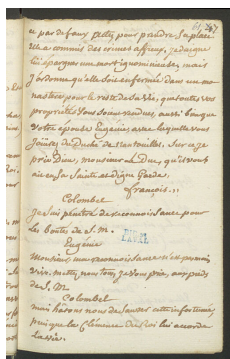 et par de faux actes pour prendre sa place
elle a commis des crimes affreux, je daigne
lui épargner une mort ignominieuse, mais
j'ordonne qu'elle soit enfermée dans un mo
nastère pour le reste de sa vie, que toutes vos
propriétés vous soient rendues, aussi bien que
votre épouse Eugénie, avec laquelle vous
jouirez du Duché de Nantouillet. Sur ce je
prie Dieu, monsieur le Duc, qu'il vous
aie en sa sainte et digne garde,
françois.
Colombel
je suis pénétré de reconnoissance pour
les bontés de S. M.
Eugénie
Monsieur, ma reconnoissance
mettez nous tous, je vous prie, aux pieds
de S. M.
Colombel
mais hâtons nous de sauver cette infortunée,
puisque la Clémence du Roi lui accorde
la vie.